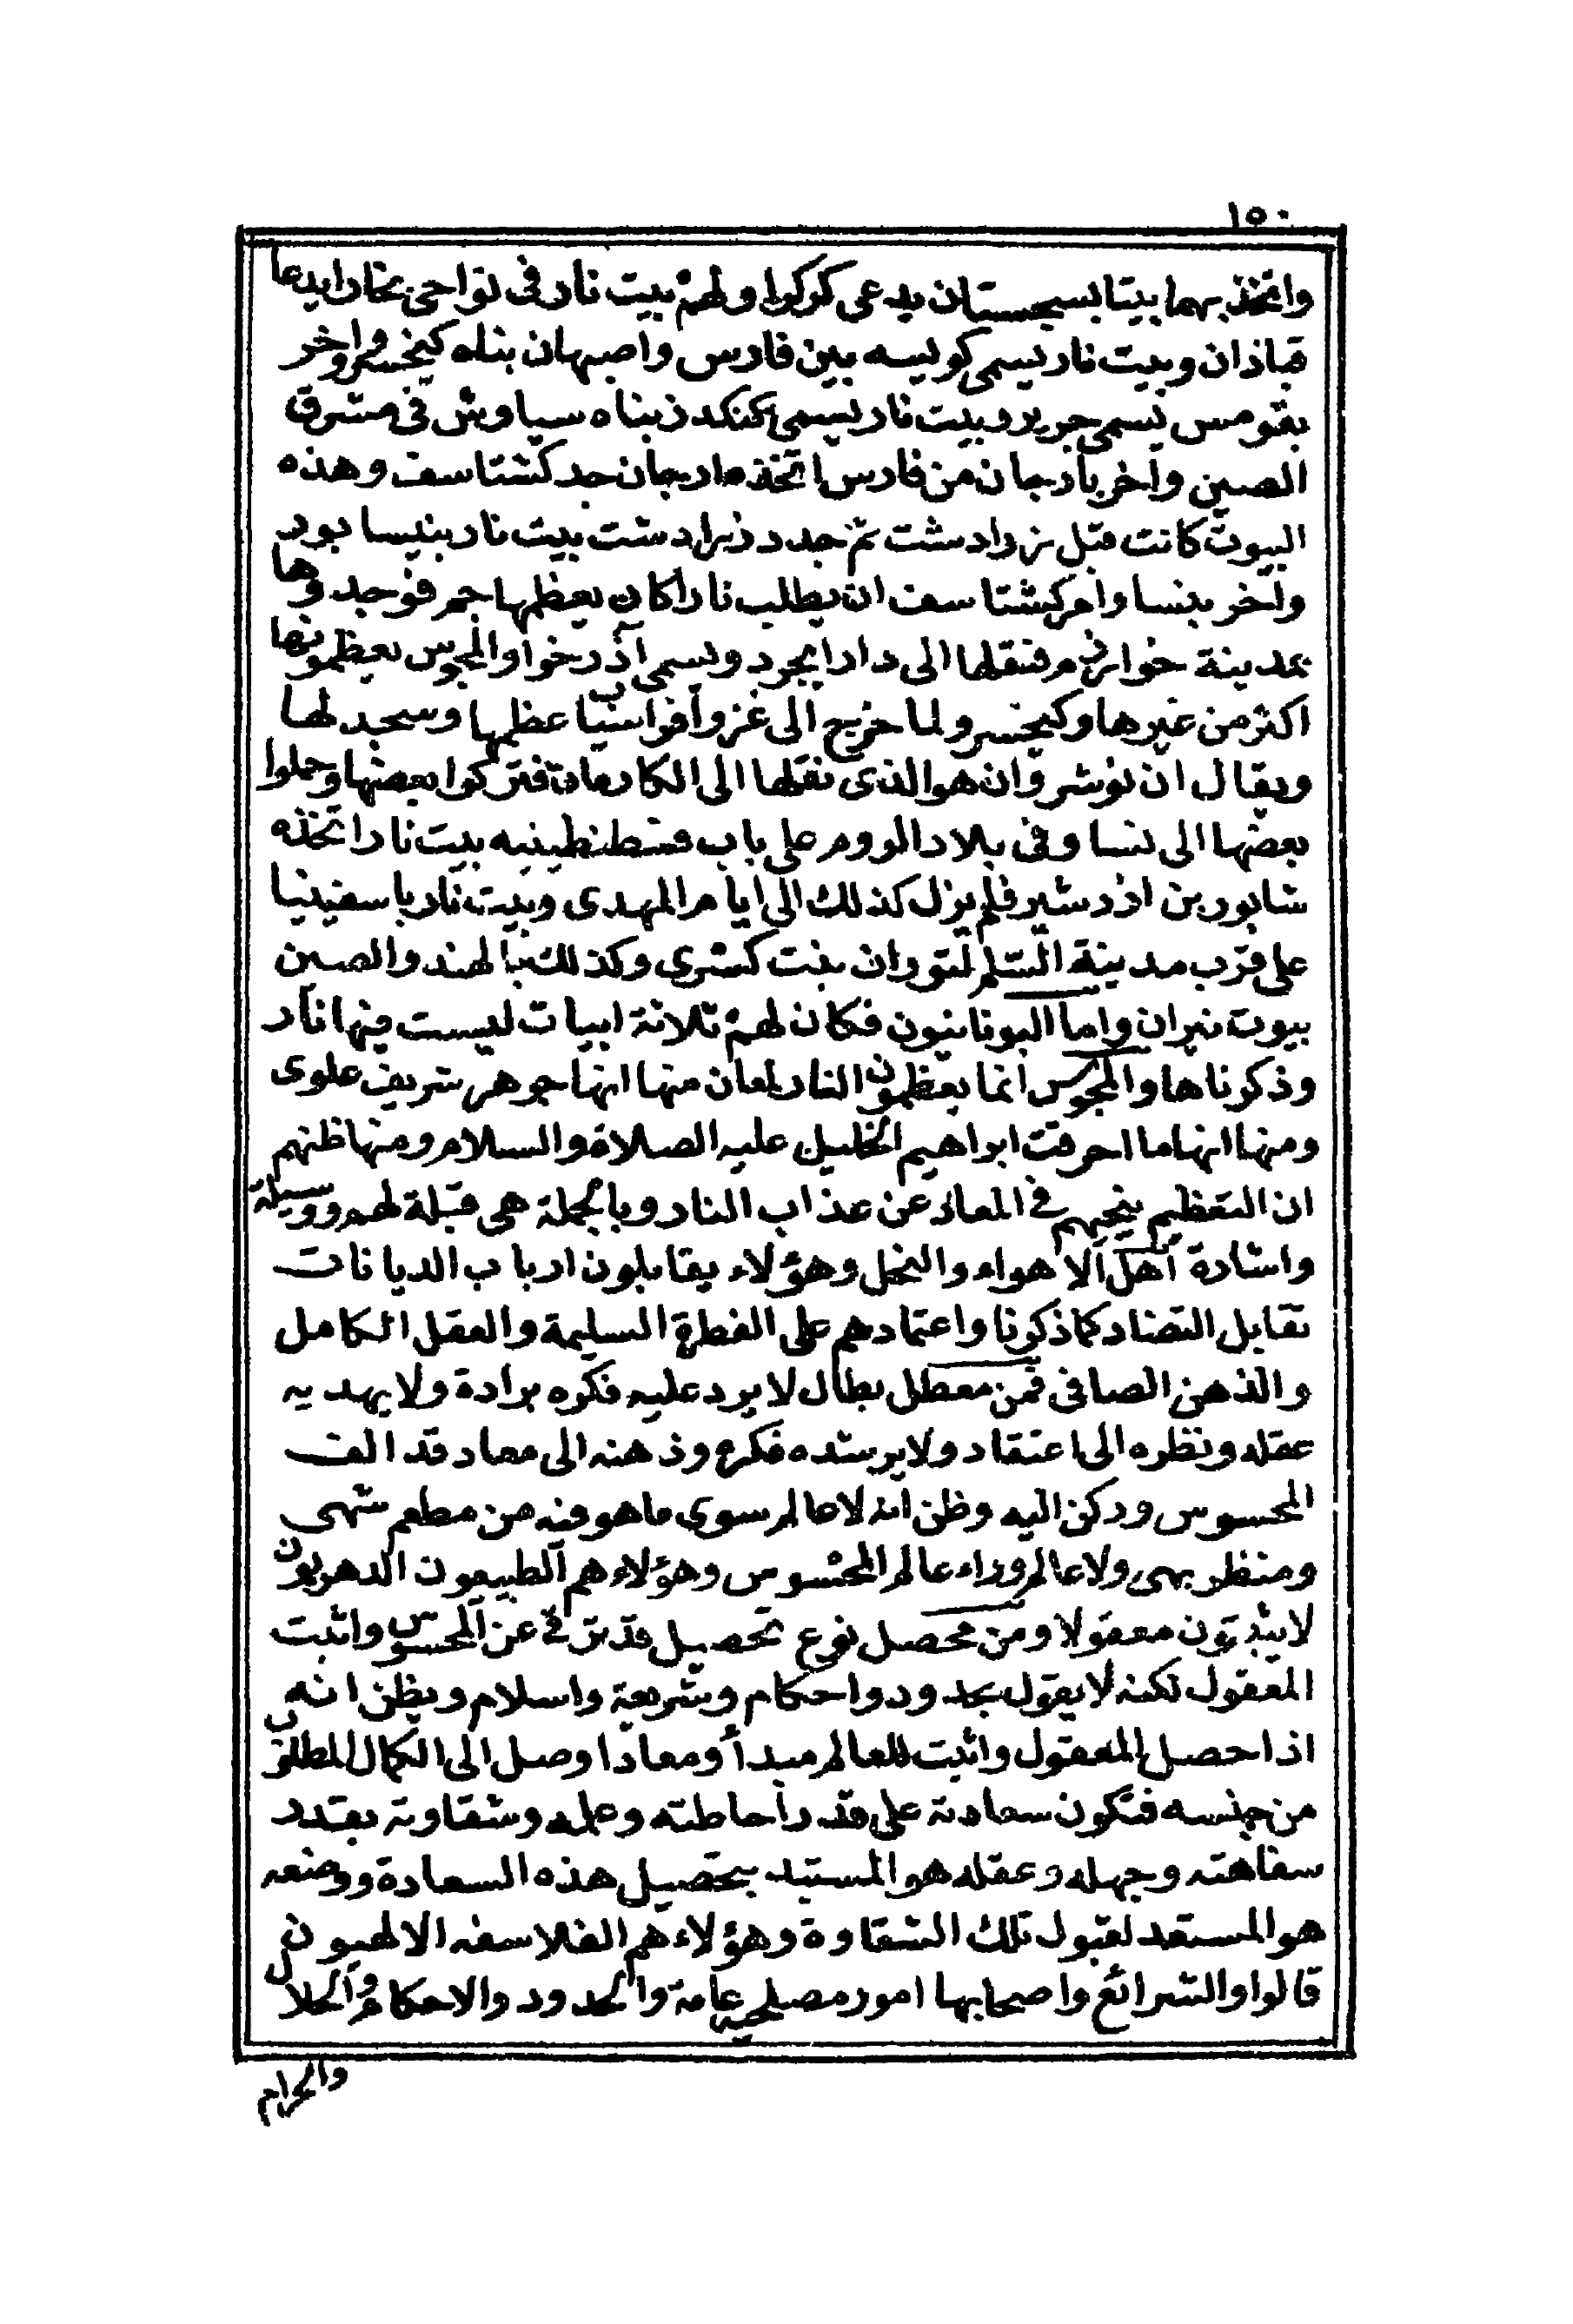 ١٥٠
واتخذ بهما بيتا بسجستان يدعى كركرا ولهم بيت نار فى نواحى بخارا يدعا
قباذان وبيت نار يسمى كويسه بين فارس واصبهان بناه كيخسرو واخر
بقومس يسمى جرير وبيت نار يسمى كنكدز بناه سياوش فى مشرق
الصين واخر بارجان من فارس اتخذه ارجان جد كشتاسف وهذه
البيوت كانت قبل زرادشت ثم جدد زرادشت بيت نار بنيسابور
واخر بنسا وامر كشتاسف ان يطلب نارا كان يعظمها جم فوجدوها
بمدينة خوارزم فنقلها الى دارابجرد ويسمى آذرخوا والمجوس يعظمونها
اكثر من غيرها وكيخسرو لما خرج الى غزو أفراسياب عظمها وسجد لها
ويقال ان نوشروان هو الذى نقلها الى الكاريان فتركوا بعضها وحملوا
بعضها الى نسا وفى بلاد الروم على باب قسطنطينيه بيت نار اتخذه
شابور بن ازدشير فلم يزل كذلك الى ايام المهدى وبيت نار باسفينيا
على قرب مدينة السلم لتوران بنت كسرى وكذلك بالهند والصين
بيوت نيران واما اليونانيون فكان لهم ثلاثة ابيات ليست فيها نار
وذكرناها والمجوس انما يعظمون النار لمعان منها انها جوهر شريف علوى
ومنها انها ما احرقت ابراهيم الخليل عليه الصلاة والسلام ومنها ظنهم
ان التعظيم ينجيهم فى المعاد عن عذاب النار وبالجملة هى قبلة لهم ووسيلة
واشارة اهل الاهواء والنحل وهؤلاء يقابلون ارباب الديانات
تقابل التضاد كما ذكرنا واعتمادهم على الفطرة السليمة والعقل الكامل
والذهن الصافى فمن معطل بطال لا يرد عليه فكره برادة ولا يهديه
عقله ونظره الى اعتقاد ولا يرشده فكره وذهنه الى معاد قد الف
المحسوس وركن اليه وظن انه لا عالم سوى ما هو فيه من مطعم شهى
ومنظر بهى ولا عالم وراء عالم المحسوس وهؤلاء هم الطبيعون الدهريون
لا يثبتون معقولا ومن محصل نوع تحصيل قد ترقى عن المحسوس واثبت
المعقول لكنه لا يقول بحدود واحكام وشريعة واسلام ويظن انه
اذا حصل المعقول واثبت للعالم مبدأ ومعادا وصل الى الكمال المطلوب
من جنسه فتكون سعادته على قدر احاطته وعلمه وشقاوته بقدر
سفاهته وجهله وعقله هو المستبد بتحصيل هذه السعادة ووضعه
هو المستعد لقبول تلك الشقاوة وهؤلاء هم الفلاسفه الالهيون
قالوا والشرائع واصحابها امور مصلحيه عامة والحدود والاحكام والحلال
والحرام